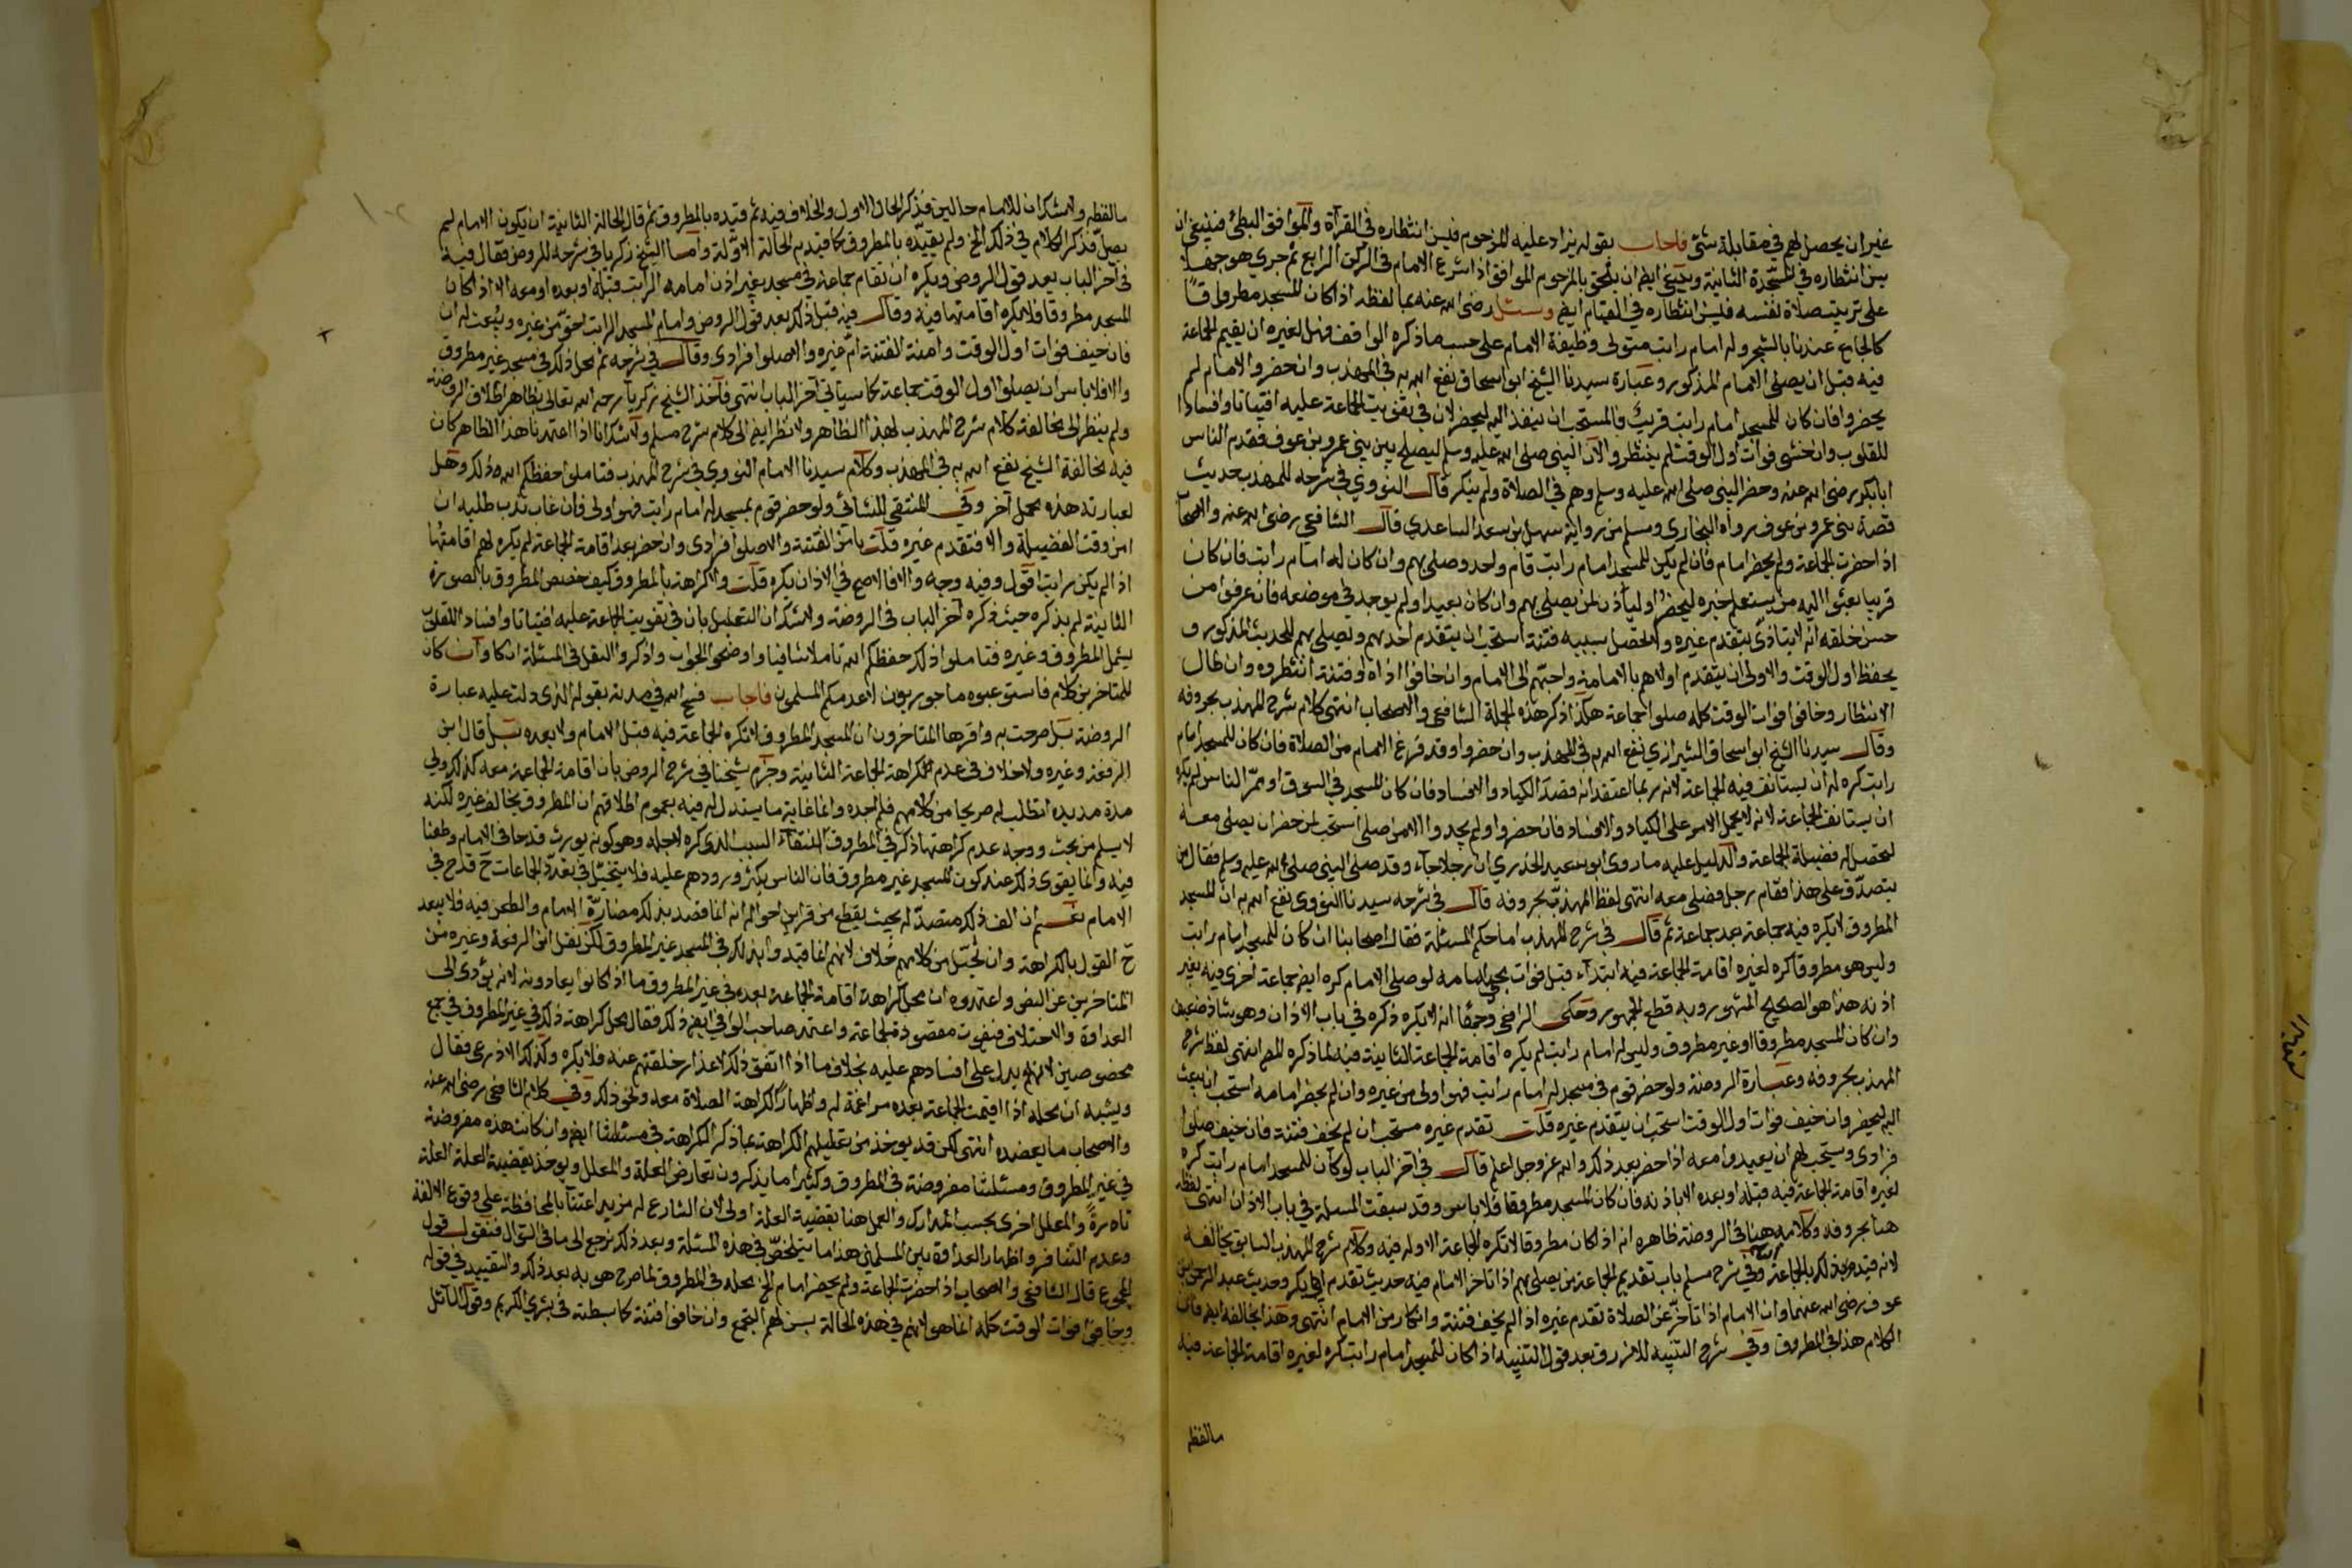 غير ان يحصل لهم في مقابلة شئ فاجاب بقوله يزاد عليه المزحوم فيسن انتظاره في القرآة والموافق البطئ فينبغي ان
يسن انتظاره في السجدة الثانية وينبغي ايضا ان يلحق بالمزحوم الموافق اذا شرع الامام في الركن الرابع ثم جري هو جهلا
على ترتيب صلاة نفسه فليس انتظاره في القيام ايضا وسئل رضي الله عنه بما لفظه اذا كان المسجد مطروقا
كالجامع عندنا بالشحر وله امام راتب متولى وظيفة الامام على حسب ما ذكره الواقف فهل لغيره ان يقيم الجماعة
فيه قبل ان يصلي الامام المذكور وعبارة سيدنا الشيخ ابو اسحاق نفع الله به في المهذب وان حضر والامام لم
يحضر فان كان للمسجد امام راتب قريب فالمستحب ان ينفذ اليه ليحضر لان في تفويت الجماعة عليه افتياتا وافسادا
للقلوب وان خشى فوات اول الوقت لم ينتظروا لان النبي صلى الله عليه وسلم ليصلح بين بني عمرو بن عوف فقدم الناس
ابا بكر رضي الله عنه وحضر النبي صلى الله عليه وسلم وهم في الصلاة ولم ينكر قال النووي في شرحه للمهذب حديث
قصة بني عمرو بن عوف رواه البخاري ومسلم من رواية سهل بن سعد الساعدي قال الشافعي رضي الله عنه والاصحاب
اذا حضرت الجماعة ولم يحضر امام فان لم يكن للمسجد امام راتب قام واحد وصلى بهم وان كان له امام راتب فان كان
قريبا بعثوا اليه من يستعلم خبره ليحضر او ليأذن لمن يصلي بهم وان كان بعيدا ولم يوجد في موضعه فان عرفوا من
حسن خلقه انه لا يتاذى بتقدم غيره ولا تحصل بسببه فتنة استحب ان يتقدم احدهم ويصلي بهم للحديث المذكور و
يحفظ اول الوقت والاولى ان يتقدم اولاهم بالامامة واحبهم الى الامام وان خافوا اذاه او فتنة انتظروه وان طال
الانتظار وخافوا فوات الوقت كله صلوا جماعة هكذا ذكر هذه الجملة الشافعي والاصحاب انتهى كلام شرح المهذب بحروفه
وقال سيدنا الشيخ ابو اسحاق الشيرازي نفع الله به في المهذب وان حضروا وقد فرغ الامام من الصلاة فان كان للمسجد امام
راتب كره له ان يستانف فيه الجماعة لانه ربما اعتقد انه قصد الكياد والافساد فان كان المسجد في السوق او ممر الناس لم يكره
ان يستانف الجماعة لانه لا يحمل الامر على الكياد والافساد فان حضروا ولم يجدوا الا من صلى استحب لمن حضر ان يصلي معه
لتحصل له فضيلة الجماعة والدليل عليه ما روى ابو سعيد الخدري ان رجلا جاء وقد صلى النبي صلى الله عليه وسلم فقال من
يتصدق على هذا فقام رجل فصلى معه انتهى لفظ المهذب بحروفه قال في شرحه سيدنا النووي نفع الله به ان المسجد
المطروق لا يكره فيه جماعة بعد جماعة ثم قال في شرح المهذب اما حكم المسئلة فقال اصحابنا ان كان للمسجد امام راتب
وليس هو مطروقا كره لغيره اقامة الجماعة فيه ابتداء قبل فوات مجئ امامه لو صلى الامام كره ايضا جماعة اخرى فيه بغير
اذنه هذا هو الصحيح المشهور وبه قطع الجمهور وحكى الرافعي وجها انه لا يكره ذكره في باب الاذان وهو شاذ ضعيف
وان كان المسجد مطروقا او غير مطروق وليس له امام راتب لم يكره اقامة الجماعة الثانية فيه لما ذكره المص انتهى لفظ شرح
المهذب بحروفه وعبارة الروضة ولو حضر قوم في مسجد له امام راتب فهو اولى من غيره وان لم يحضر امامه استحب ان يبعث
اليه ليحضر وان خيف فوات اول الوقت استحب ان يتقدم غيره قلت تقدم غيره مستحب ان لم يخف فتنة فان خيف صلوا
فرادى ويستحب لهم ان يعيدوا معه اذا حضر بعد ذلك والله عز وجل اعلم قال في آخر الباب لو كان للمسجد امام راتب كره
لغيره اقامة الجماعة فيه قبله او بعده الا باذنه فان كان المسجد مطروقا فلا باس وقد سبقت المسئلة في باب الاذان انتهى لفظه
هنا بحروفه وكلامه هنا في الروضة ظاهره انه اذا كان مطروقا لا تكره الجماعة الاوله فيه وكلام شرح المهذب السابق يخالفه
لانه قيد ذلك بالجماعة وفي شرح مسلم باب تقديم الجماعة من يصلي بهم اذا تاخر الامام فيه حديث تقدم ابي بكر وحديث عبد الرحمن بن
عوف رضي الله عنهما وان الامام اذا تاخر عن الصلاة تقدم غيره اذا لم يخف فتنة وانكار من الامام انتهى وهذا يخالفه ايضا فان
الكلام هذا في المطروق وفي شرح التنبيه للازرق بعد قول التنبيه اذا كان للمسجد امام راتب كره لغيره اقامة الجماعة فيه
مالفظه
مالفظه ولا شك ان للامام حالين فذكر الحال الاول والخلاف فيه ثم قيده بالمطروق ثم قال الحالة الثانية ان يكون الامام لم
يصل فذكر الكلام في ذلك الخ ولم يقيده بالمطروق كما قيد به الحالة الاولة واما الشيخ زكريا في شرحه للروض فقال فيه
في آخر الباب بعد قول الروض ويكره ان تقام جماعة في مسجد بغير اذن امامه الراتب قبله او بعده او معه الا اذا كان
المسجد مطروقا فلا يكره اقامتها فيه وقال فيه قبل ذلك بعد قول الروض وامام المسجد الراتب احق من غيره ويبعث له ان
فان خيف فوات اول الوقت وامنت الفتنة ام غيره والا صلوا فرادى وقال في شرحه ثم محل ذلك في مسجد غير مطروق
والا فلا باس ان يصلوا اول الوقت جماعة كما سياتي آخر الباب انتهى فآخذ الشيخ زكريا رحمه الله تعالى بظاهر اطلاق الروضة
ولم ينظر الى مخالفة كلام شرح المهذب لهذا الظاهر ولا نظر ايضا الى كلام شرح مسلم ولا شك انا اذا اعتمدنا هذا الظاهر كان
فيه مخالفة الشيخ نفع الله به في المهذب وكلام سيدنا الامام النووي في شرح المهذب فتاملوا حفظكم الله ذلك وهل
لعبارته هذه محمل آخر وفي المنتقى للنشائي ولو حضر قوم بمسجد له امام راتب فهو اولى فان غاب ندب طلبه ان
امن وقت الفضيلة والا فتقدم غيره قلت بامن الفتنة والا صلوا فرادى وان حضر بعد اقامة الجماعة لم يكره لهم اقامتها
اذا لم يكن راتبا قول وفيه وجه والا فالاصح في الاذان يكره قلت والكراهة بالمطروق كيف خصص المطروق بالصورة
الثانية لم يذكره حيث ذكره آخر الباب في الروضة ولا شك ان التعليل بان في تفويت الجماعة عليه افتياتا وافساد القلوب
يشمل المطروق وغيره فتاملوا ذلك حفظكم الله تاملا شافيا واوضحوا الجواب واذكروا النقل في المسئلة ان كان وان كان
للمتاخرين كلام فاستوعبوه ماجورين لا عدمكم المسلمون فاجاب فسح الله في مدته بقوله الذى دلت عليه عبارة
الروضة بل صرحت به واقرها المتاخرون ان المسجد المطروق لا تكره الجماعة فيه قبل الامام ولا بعده بل قال ابن
الرفعة وغيره ولا خلاف في عدم كراهة الجماعة الثانية وجزم شيخنا في شرح الروض بان اقامة الجماعة معه كذلك ولي
مدة مديدة اتطلب له صريحا من كلامهم فلم اجده وانما غاية ما يستدل له فيه بعموم اطلاقهم ان المطروق يخالف غيره لكنه
لا يسلم من بحث ووجه عدم كراهة ما ذكر في المطروق انتفاء السبب الذى كره لاجله وهو كونه يورث قدحا في الامام وطعنا
فيه وانما يقوى ذلك عند كون المسجد غير مطروق فان الناس يكثر ورودهم عليه فلا يتخيل في تعدد الجماعات ح قدح في
الامام نعم ان الف ذلك متصد له بحيث يقطع من قراين احواله انه انما قصد بذلك مضارة الامام والطعن فيه فلا يبعد
ح القول بالكراهة وان تخيل من كلامهم خلاف لانهم انما قيدوا بذلك في المسجد غير المطروق لكن نقل ابن الرفعة وغيره من
المتاخرين عن النص واعتمدوه ان محل كراهة اقامة الجماعة بعده في غير المطروق ما اذا كانوا يعادونه لانه يؤدي الى
العداوة والاختلاف فيفوت مقصود الجماعة واعتمد صاحب الوافي ايضا ذلك فقال محل كراهة ذلك في غير المطروق في جمع
مخصوصين لانهم يدل على افسادهم عليه بخلاف ما اذا اتفق ذلك لاعذار خلفتهم عنه فلا يكره وكذلك الاذرعي فقال
ويشبه ان محله اذا اقيمت الجماعة بعده مراغمة له واظهارا لكراهة الصلاة معه ونحو ذلك وفي كلام الشافعي رضي الله عنه
والاصحاب ما يعضده انتهى لكن قد يوخذ من تعليلهم الكراهة بما ذكر الكراهة في مسئلتنا ايضا وان كانت هذه مفروضة
في غير المطروق ومسئلتنا مفروضة في المطروق وكثيرا ما يذكرون تعارض العلة والمعلل ويوخذ بقضية العلة العلة
تارة والمعلل اخرى بحسب المدارك والعمل هنا بقضية العلة اولى لان الشارع له مزيد اعتناء بالمحافظة على وقوع الالفة
وعدم التنافر واظهار العداوة بين المسلمين هذا ما يتلخص في هذه المسئلة وبعد ذلك نرجع الى ما في السؤال فنقول قول
المجموع قال الشافعي والاصحاب اذا حضرت الجماعة ولم يحضر امام الخ محله في المطروق لما صرح هو به بعد ذلك والتقييد في قوله
وخافوا فوات الوقت كله انما هو لانهم في هذه الحالة يسن لهم التجمع وان خافوا فتنة كما بسطته في بشرى الكريم وقول القائل